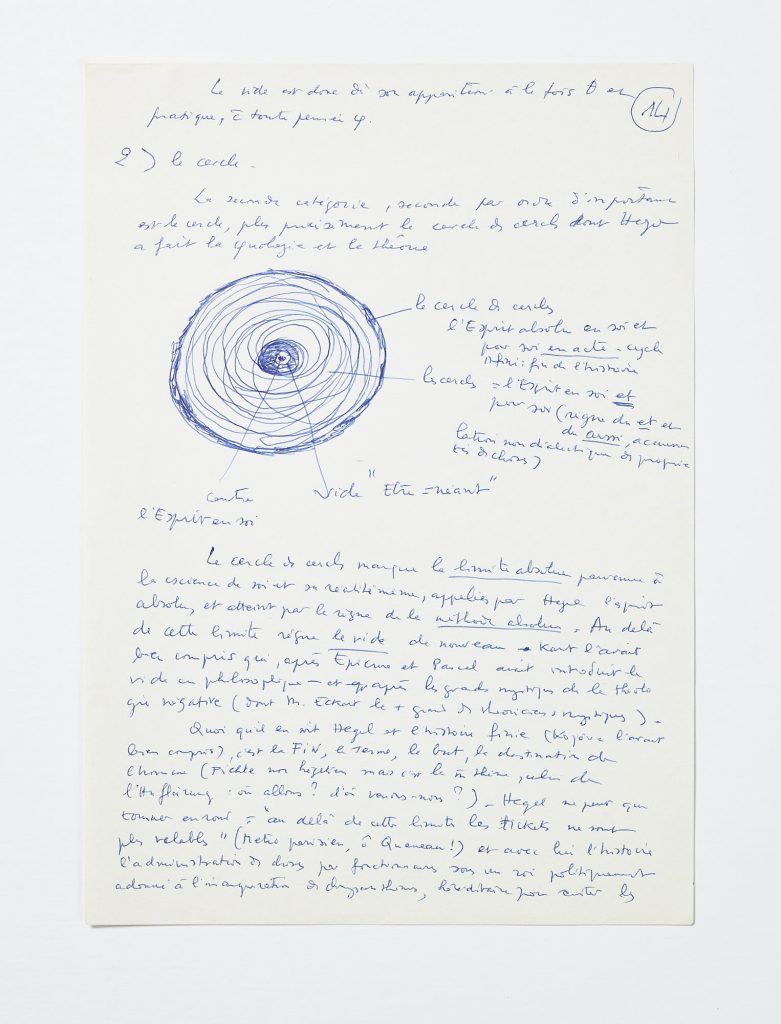 Le vide est donc dès son apparition à la fois θ et
14
pratique, à toute pensée φ.
2) le cercle.
La seconde catégorie, seconde par ordre d'importance
est le cercle, plus précisément le cercle des cercles dont Hegel
a fait la et la théorie
le cercle de cercles
l'Esprit absolu en soi et
pour soi en acte = cycle
infini: fin de l'histoire
les cercles = l'Esprit en soi et
pour soi (règne du et et
du aussi, accumu
lation non dialectique de proprié
tés de choses)
centre
vide "Etre = néant"
l'Esprit en soi
Le cercle de cercles marque la limite absolue parvenue à
la cscience de soi et sa réalité même, appelées par Hegel l'esprit
absolu, et atteint par le règne de la méthode absolue. Au delà
de cette limite règne le vide de nouveau. Kant l'avait
bien compris qui, après Epicure et Pascal avait introduit le
vide en philosophie — et après les grands mystiques de la théolo
gie négative (dont M. Eckart le + grand des théoriciens mystiques).
Quoi qu'il en soit Hegel et l'histoire finie (Kojève l'avait
bien compris), c'est la FIN, le Terme, le but, la destination de
l'homme (Fichte non hégélien mais c'est le m̂ thème, celui de
l'Aufklärung: où allons? d'où venons-nous?). Hegel ne peut que
tourner en rond = "au delà de cette limite les tickets ne sont
plus valables" (Métro parisien, ô Queneau!) et avec lui l'histoire
l'administration des choses par fonctionnaires sous un roi politiquement
adonné à l'inauguration de chrysanthèmes, héréditaire pour éviter les